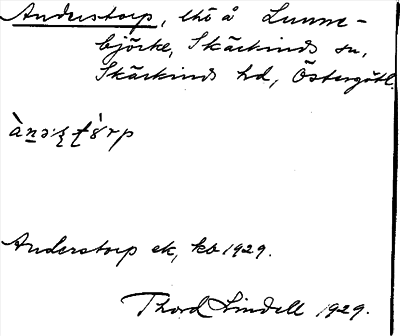 Anderstorp, lht å Lunne-
björke, Skärkinds sn,
Skärkinds hd, Östergötl.
Anderstorp ek, kb 1929.
Thord Lindell 1929.